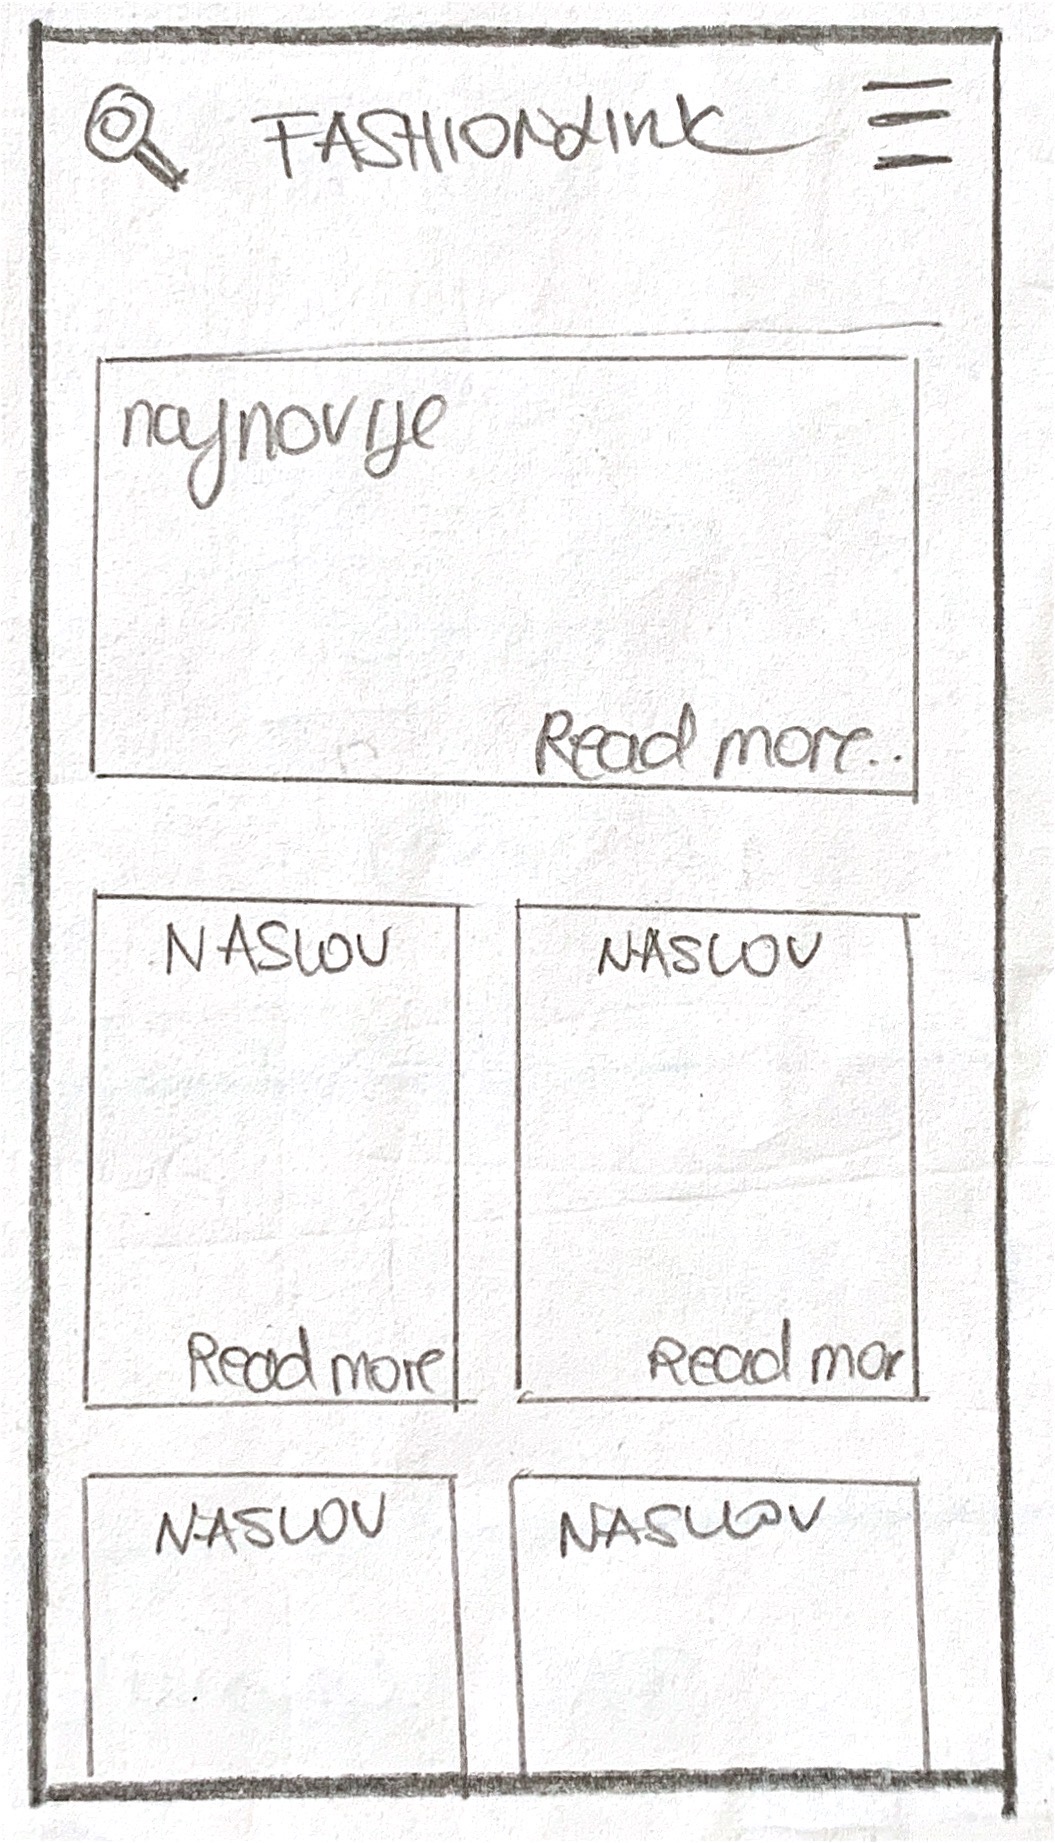 FASHIONLINK
najnovije
Read more..
NASLOV
NASLOV
Read more
Read mor
NASLOV
NASLOV